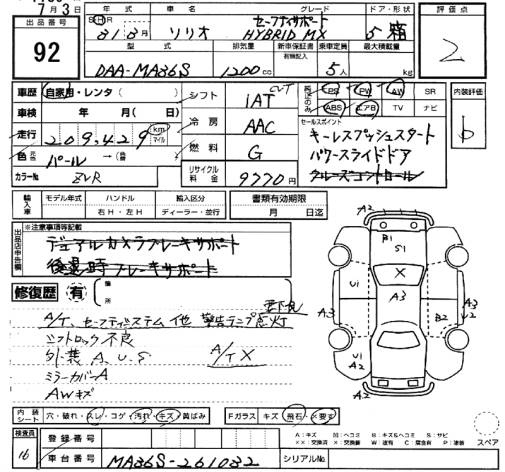 7月3
出品番号 92
年式 車名 グレード ドア・形状 評価点
S H R 31年3月 ソリオ セーフティサポート HYBRID MX 5 箱 2
型式 排気量 新車保証書 乗車定員 最大積載量
有機記入
DAA-MA36S 1200cc 5人 kg
車歴 自家用・レンタ( ) シフト IAT CVT PS PW AW SR 内装評価
車検 年 月( 日) 冷房 AAC ABS エアB TV ナビ D
走行 209,429 km マイル 燃料 G セールスポイント
キーレスプッシュスタート
色 パール →( ) パワースライドドア
カラーNo ZVR リサイクル料金 9770円 クルーズコントロール
輸入車 モデル年式 ハンドル 輸入区分 書類有効期限
右H・左H ディーラー・並行 月 日迄
出品店申告欄 ※注意事項等記載
デュアルカメラブレーキサポート
後退時ブレーキサポート
修復歴 有 箇所
A/T、セーフティシステム他 警告ランプ点灯
不良
外装 A.U.S A/T X
ミラーカバーA
AWキズ
A2 B1 S1 X Ui A3 A3 A3 U2 B2 Ui A2 A2
内装シート 穴・破れ・スレ・コゲ・汚れ・キズ・黄ばみ Fガラス キズ・飛石・×要す
A:キズ M:ヘコミ B:キズ&ヘコミ S:サビ
××:交換済 X:交換要 W:波有 C:腐食有 P:塗装 スペア
検査員 16 登録番号
車台番号 MA36S-261032 シリアルNo.